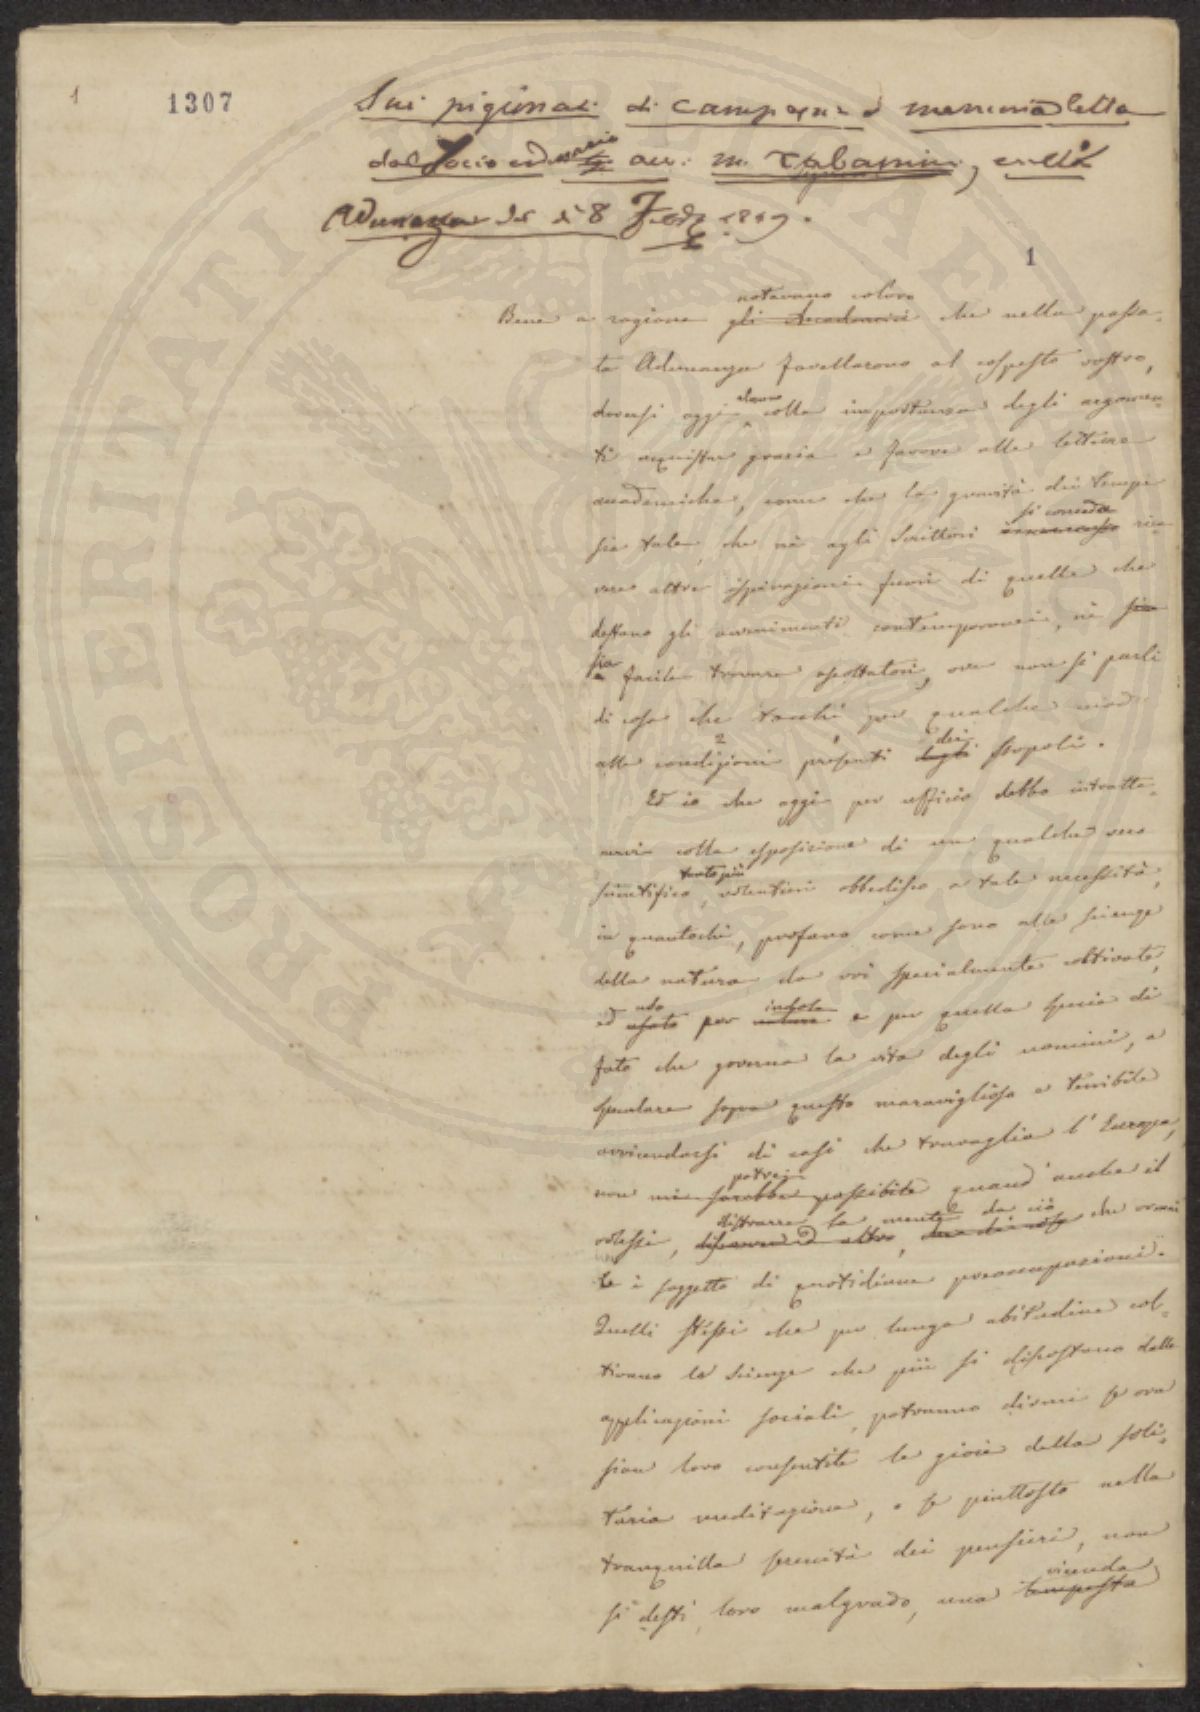 1
1307
Sui pigionali di campagna, memoria letta
dal Socio ordinario avv. M. Tabarrini, nella
Adunanza del dì 8 1849.
1
notavano coloro
Bene a ragione gli Accademici che nella passa-
ta Adunanza favellarono al cospetto vostro,
doversi oggi colla importanza degli argomen-
ti acquistar grazia e favore alle letture
accademiche, come che la gravità dei tempi
si conceda
sia tale, che nè agli Scrittori rice-
vere altre ispirazioni fuori di quelle che
destano gli avvenimenti contemporanei, nè sia
sia facile trovare ascoltatori, ove non si parli
di cosa che tocchi per qualche modo
2 1 dei
alle condizioni presenti degli popoli.
Ed io che oggi per ufficio debbo intratte-
nervi colla esposizione di un qualche vero
tanto più
scientifico, volentieri obbedisco a tale necessità,
in quantochè, profano come sono alle scienze
della natura da voi specialmente coltivate,
uso indole
ed usato per natura e per quella specie di
fato che governa la vita degli uomini, a
speculare sopra questo maraviglioso e terribile
avvicendarsi di casi che travaglia l'Europa,
potrei
non mi sarebbe possibile quand'anche il
distrarre la mente da ciò
volessi, ad altro, che ormai
è soggetto di quotidiane preoccupazioni.
Quelli stessi che per lunga abitudine col-
tivano le Scienze che più si discostano dalle
applicazioni sociali, potranno dirmi se ora
sian loro consentite le gioie della soli-
taria meditazione, o se piuttosto nella
tranquilla serenità dei pensieri, non
vicenda
si desti loro malgrado, una tempesta